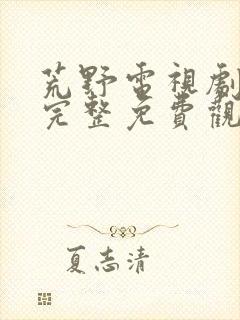 荒野電視劇
完整免費觀
夏志清